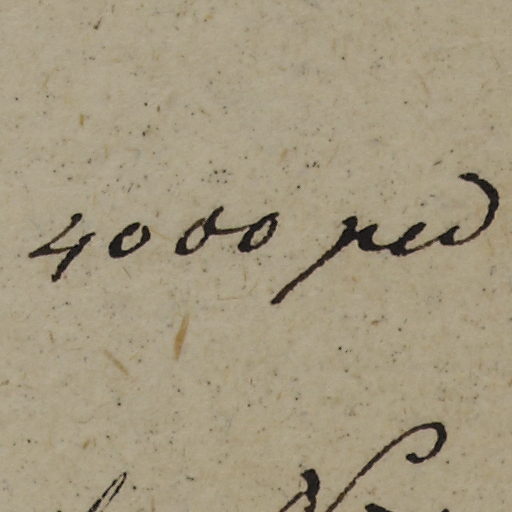 4000 ped